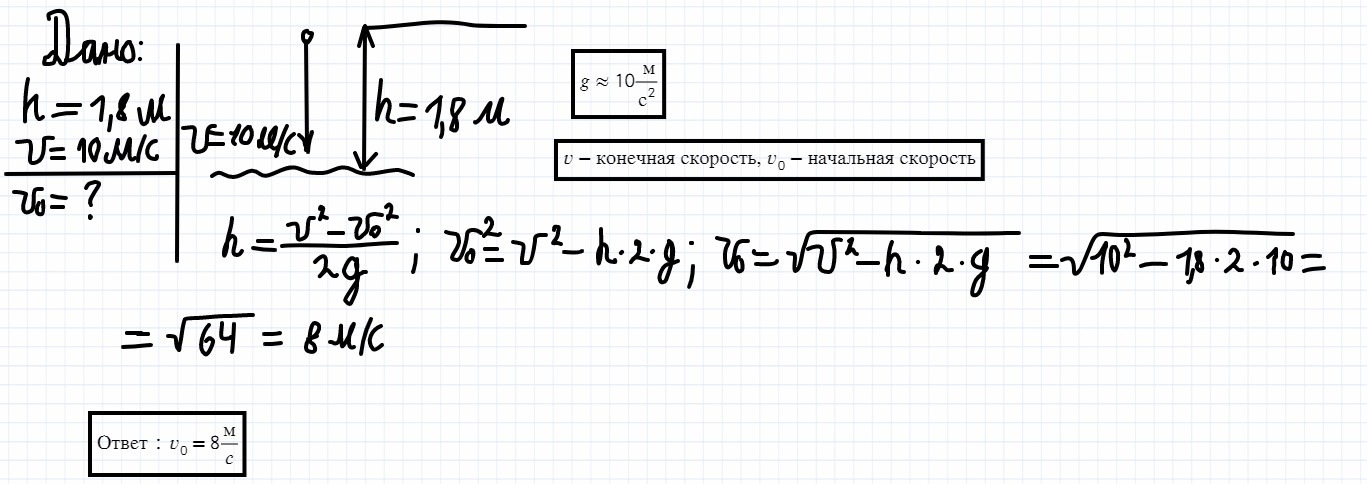 Дано:
h = 1,8 м
v = 10 м/с
v₀ = ?
v = 10 м/с
h = 1,8 м
g ≈ 10 м/с²
v – конечная скорость, v₀ – начальная скорость
h = (v² – v₀²)/2g ; v₀² = v² – h · 2 · g ; v₀ = √(v² – h · 2 · g) = √(10² – 1,8 · 2 · 10) =
= √64 = 8 м/с
Ответ : v₀ = 8 м/с